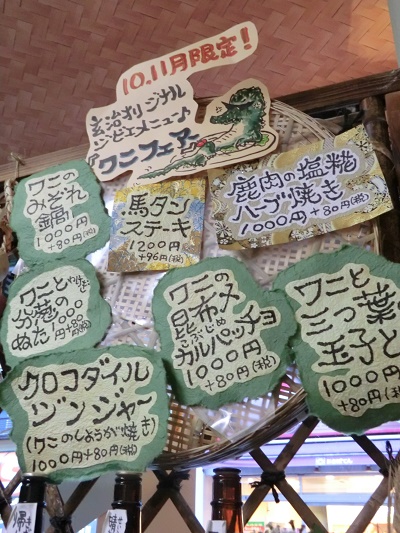 10.11月限定!
玄治オリジナル
ジビエメニュー♪
ワニフェア
ワニの
みぞれ
鍋!
1000円
+80円(税)
馬タン
ステーキ
1200円
+96円(税)
鹿肉の塩糀
ハーブ焼き
1000円+80円(税)
ワニと
分葱の
ぬた
1000円+80円(税)
ワニの
昆布〆
こぶじめ
カルパッチョ
1000円
+80円(税)
ワニと
三つ葉
玉子と
1000円
+80円(税)
クロコダイル
ジンジャー
(ワニのしょうが焼き)
1000円+80円(税)